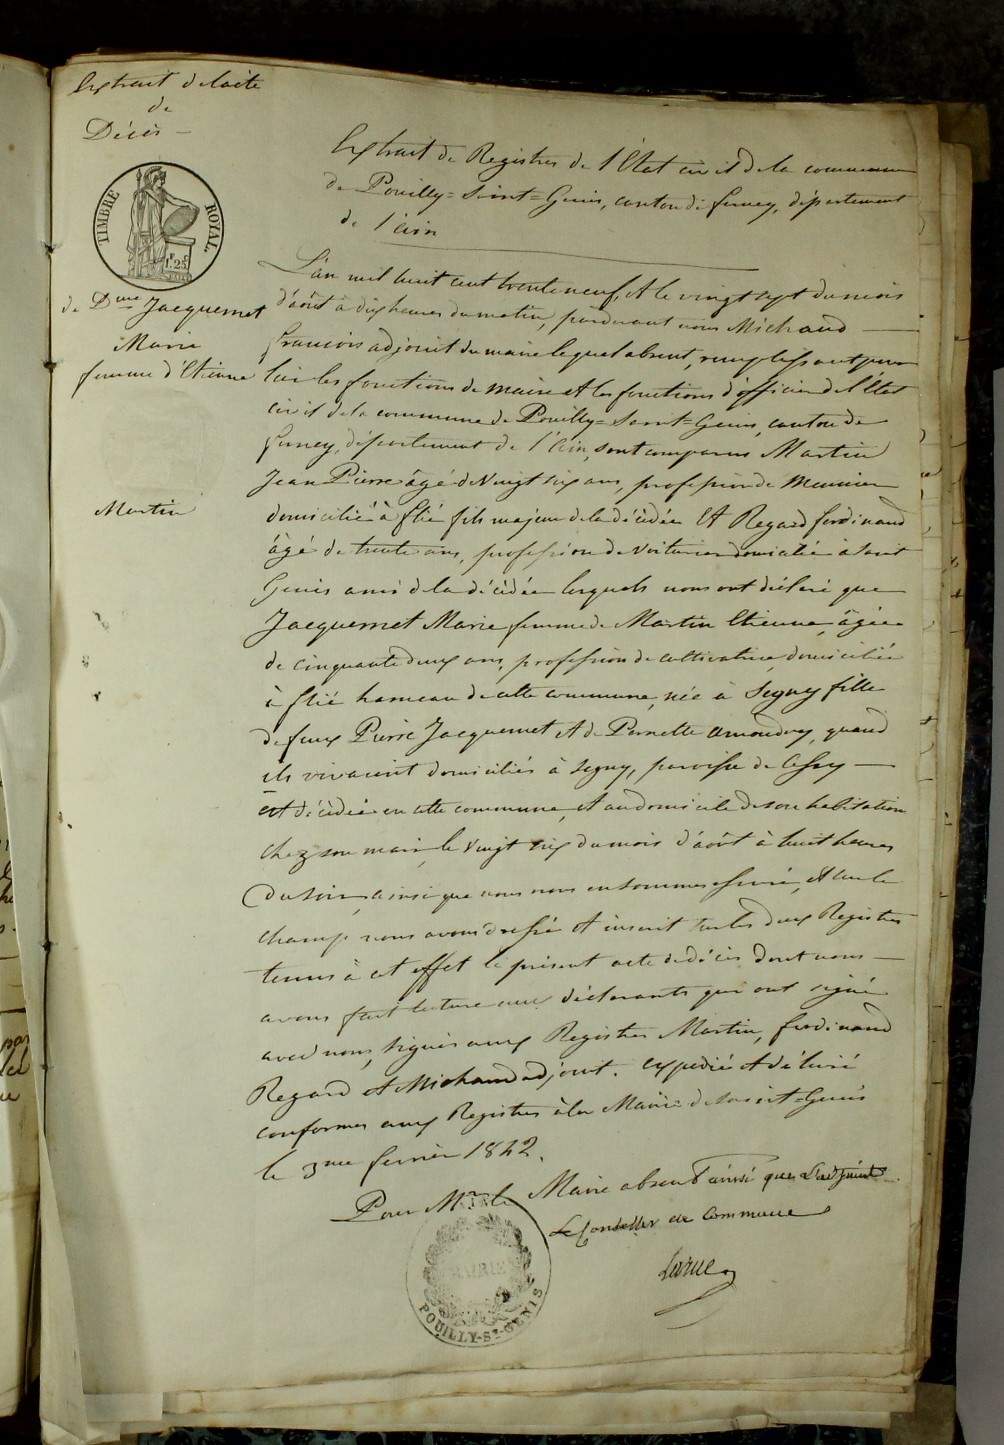 Extrait de l'acte
de
Décès —
TIMBRE ROYAL
1.25
de Dme Jacquemet
Marie
femme d'Etienne
Martin
Extrait de Registres de l'Etat civil de la commune
de Pouilly=Saint=Genis, canton de ferney, département
de l'ain
L'an mil huit cent trente neuf, et le vingt sept du mois
d'août à dix heures du matin, pardevant nous Michaud —
francois adjoint du maire lequel absent, remplissant pour
lui les fonctions de maire et les fonctions d'officier de l'État
civil de la commune de Pouilly=Saint=Genis, canton de
ferney, département de l'ain, sont comparus Martin
Jean Pierre âgé de Vingt six ans, profession de Meunier
domicilié à flié fils majeur de la décédée Et Regard ferdinand
âgé de trente ans, profession de Voiturier domicilié à Saint
Genis ami de la décédée lesquels nous ont déclaré que
Jacquemet Marie femme de Martin Etienne, âgée
de cinquante deux ans, profession de cultivatrice, domiciliée
à flié hameau de cette commune, née à Segny fille
de feux Pierre Jacquemet et de Pernette amoudry, quand
ils vivaient domiciliés à Segny, paroisse de Cessy —
est décédée en cette commune, et au domicile de son habitation
chez son mari, le Vingt six du mois d'août à huit heures
du soir, ainsi que nous nous en sommes assuré, et sur le
champ nous avons dressé et inscrit sur les deux Registres
tenus à cet effet le présent acte de décès dont nous —
avons fait lecture aux déclarants qui ont signé
avec nous, signés aux Registres Martin, ferdinand
Regard et Michaud adjoint. expedié et délivré
conforme aux Registres à la Mairie de Saint=Genis
le 3me fevrier 1842.
Pour Mr le Maire absent ainsi que L'adjoint
Le Conseiller de Commune
MAIRIE
POUILLY-St-GENIS